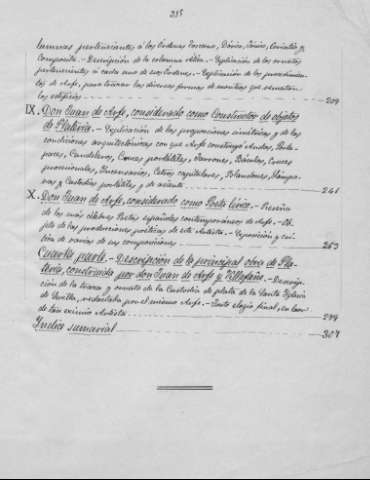 315
lumnas pertenecientes á los Órdenes Toscano, Dórico, Jónico, Corintio y
Compuesto. - Descripción de la columna Ática. - Explicación de los ornatos
pertenecientes á cada uno de sus Órdenes. - Explicación de los procedimien-
tos de Arfe, para trazar las diversas formas de que rematan
los edificios 209
IX. Don Juan de Arfe, considerado como Constructor de objetos
de Platería. - Explicación de las proporciones simétricas y de las
condiciones arquitectónicas con que Arfe construyó Andas, Porta-
paces, Candeleros, Cruces portátiles, Jarrones, Báculos, Cruces
procesionales, Incensarios, Cetros capitulares, Blandones, Lámpa-
ras y Custodias portátiles y de asiento 241
X. Don Juan de Arfe, considerado como Poeta lírico. - Reseña
de los más célebres Poetas españoles contemporáneos de Arfe. - Ob-
jeto de las producciones poéticas de este Artista. - Exposición y crí-
tica de varias de sus composiciones 263
Cuarta parte. - Descripción de la principal obra de Pla-
tería, construida por don Juan de Arfe y Villafañe. - Descrip-
ción de la traza y ornato de la Custodia de plata de la Santa Iglesia
de Sevilla, redactada por el mismo Arfe. - Justo elogio final, en loor
de tan eximio Artista 299
Índice sumarial 307